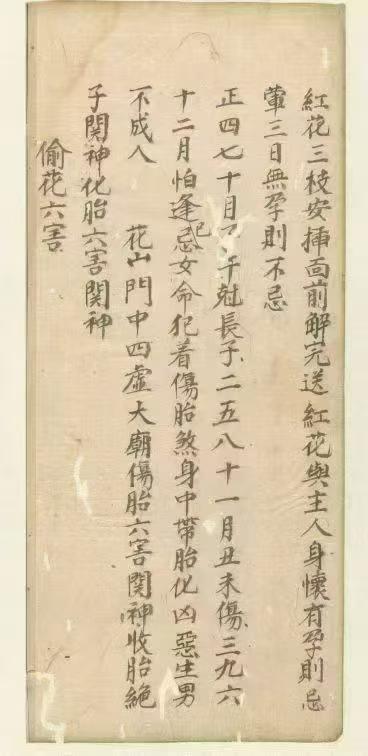 紅花三枝安揷面前解完送紅花與主人身懷有孕則忌
葷三日無孕則不忌
正四七十月午尅長子二五八十一月丑未傷三九六
十二月怕逢忌女命犯着傷胎煞身中帶胎化凶惡生男
不成人　花山門中四虛大廟傷胎六害関神收胎絶
子関神化胎六害関神
偷花六害